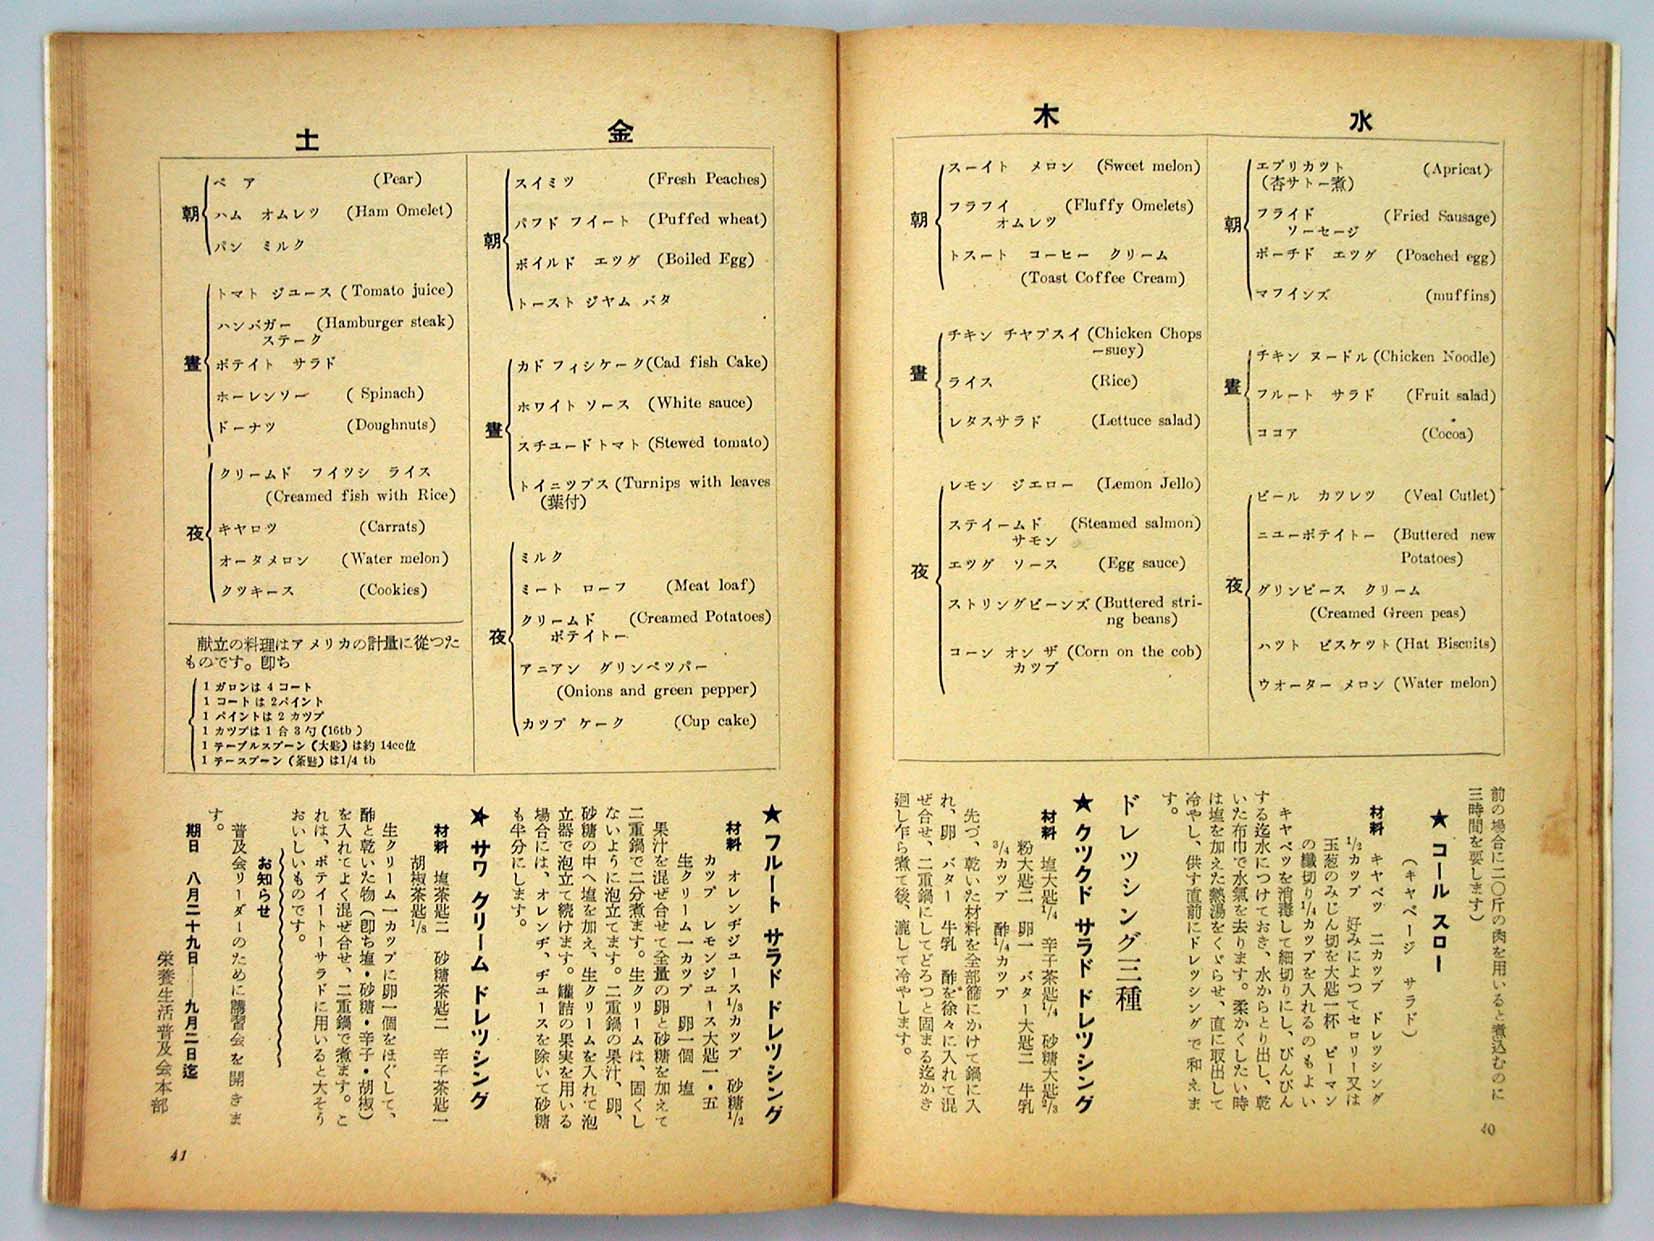 水
朝
エプリカツト (Apricat)
(杏サトー煮)
フライド (Fried Sausage)
ソーセージ
ポーチド エツグ (Poached egg)
マフインズ (muffins)
晝
チキン ヌードル (Chicken Noodle)
フルート サラド (Fruit salad)
ココア (Cocoa)
夜
ビール カツレツ (Veal Cutlet)
ニユーポテイトー (Buttered new
Potatoes)
グリンピース クリーム
(Creamed Green peas)
ハツト ビスケツト (Hat Biscuits)
ウオーター メロン (Water melon)
木
朝
スーイト メロン (Sweet melon)
フラフイ (Fluffy Omelets)
オムレツ
トスート コーヒー クリーム
(Toast Coffee Cream)
晝
チキン チヤプスイ (Chicken Chops
—suey)
ライス (Rice)
レタスサラド (Lettuce salad)
夜
レモン ジエロー (Lemon Jello)
ステイームド (Steamed salmon)
サモン
エツグ ソース (Egg sauce)
ストリングビーンズ (Buttered stri-
ng beans)
コーン オン ザ (Corn on the cob)
カツプ
前の場合に二〇斤の肉を用いると煮込むのに
三時間を要します)
★ コール スロー
(キャベージ サラド)
材料 キヤベツ 二カツプ ドレツシング
1/2カツプ 好みによつてセロリー又は
玉葱のみじん切を大匙一杯 ピーマン
の繊切り1/4カツプを入れるのもよい
キヤベツを消毒して細切りにし、ぴんぴん
する迄氷につけておき、水からとり出し、乾
いた布巾で水氣を去ります。柔かくしたい時
は塩を加えた熱湯をくぐらせ、直に取出して
冷やし、供す直前にドレツシングで和えま
す。
ドレツシング三種
★ クツクド サラド ドレツシング
材料 塩大匙1/4 辛子茶匙1/4 砂糖大匙2/3
粉大匙二 卵一 バター大匙二 牛乳
3/4カツプ 酢1/4カツプ
先づ、乾いた材料を全部篩にかけて鍋に入
れ、卵 バター 牛乳 酢を徐々に入れて混
ぜ合せ、二重鍋にしてどろつと固まる迄かき
廻し乍ら煮て後、漉して冷やします。
40
金
朝
スイミツ (Fresh Peaches)
パフド フイート (Puffed wheat)
ボイルド エツグ (Boiled Egg)
トースト ジヤム バタ
晝
カド フィシケーク (Cad fish Cake)
ホワイト ソース (White sauce)
スチユードトマト (Stewed tomato)
トイニツプス (Turnips with leaves
(葉付)
夜
ミルク
ミート ローフ (Meat loaf)
クリームド (Creamed Potatoes)
ポテイトー
アニアン グリンペツパー
(Onions and green pepper)
カツプ ケーク (Cup cake)
土
朝
ペア (Pear)
ハム オムレツ (Ham Omelet)
パン ミルク
晝
トマト ジユース (Tomato juice)
ハンバガー (Hamburger steak)
ステーク
ポテイト サラド
ホーレンソー (Spinach)
ドーナツ (Doughnuts)
夜
クリームド フイツシ ライス
(Creamed fish with Rice)
キヤロツ (Carrats)
オータメロン (Water melon)
クツキース (Cookies)
献立の料理はアメリカの計量に從つた
ものです。卽ち
1 ガロンは 4 コート
1 コートは 2パイント
1 パイントは 2 カツプ
1 カツプは 1 合 3 勺 (16tb)
1 テーブルスプーン (大匙) は約 14cc位
1 テースプーン (茶匙) は1/4 tb
★ フルート サラド ドレツシング
材料 オレンヂジユース1/3カツプ 砂糖1/2
カツプ レモンジユース大匙一・五
生クリーム一カツプ 卵一個 塩
果汁を混ぜ合せて全量の卵と砂糖を加えて
二重鍋で二分煮ます。生クリームは、固くし
ないように泡立てます。二重鍋の果汁、卵、
砂糖の中へ塩を加え、生クリームを入れて泡
立器で泡立て続けます。罐詰の果実を用いる
場合には、オレンヂ、ヂユースを除いて砂糖
も半分にします。
★ サワ クリーム ドレツシング
材料 塩茶匙二 砂糖茶匙二 辛子茶匙一
胡椒茶匙1/8
生クリーム一カツプに卵一個をほぐして、
酢と乾いた物(卽ち塩・砂糖・辛子・胡椒)
を入れてよく混ぜ合せ、二重鍋で煮ます。こ
れは、ポテイートーサラドに用いると大そう
おいしいものです。
お知らせ
普及会リーダーのために講習会を開きま
す。
期日 八月二十九日——九月二日迄
栄養生活普及会本部
41